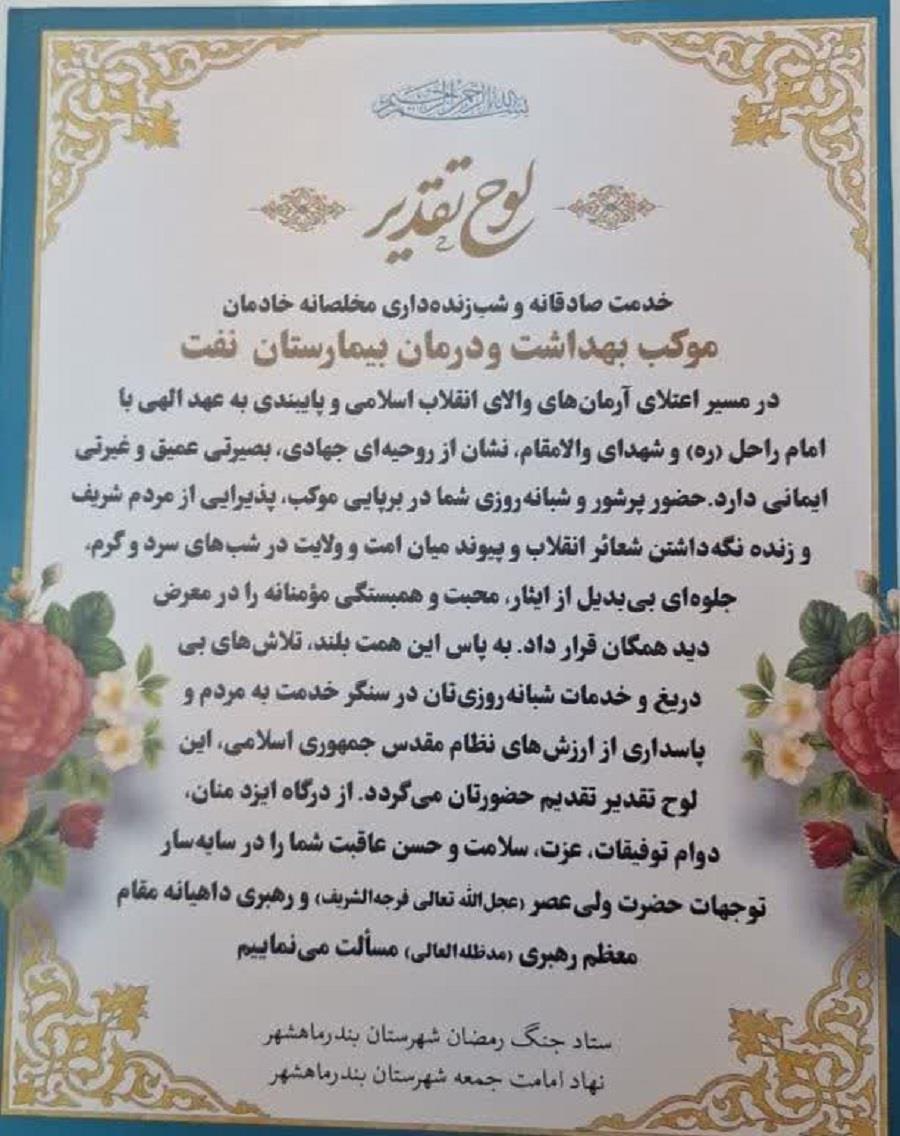 بسم الله الرحمن الرحیم
لوح تقدیر
خدمت صادقانه و شب‌زنده‌داری مخلصانه خادمان
موکب بهداشت ودرمان بیمارستان نفت
در مسیر اعتلای آرمان‌های والای انقلاب اسلامی و پایبندی به عهد الهی با
امام راحل (ره) و شهدای والامقام، نشان از روحیه‌ای جهادی، بصیرتی عمیق و غیرتی
ایمانی دارد.حضور پرشور و شبانه‌روزی شما در برپایی موکب، پذیرایی از مردم شریف
و زنده نگه‌داشتن شعائر انقلاب و پیوند میان امت و ولایت در شب‌های سرد و گرم،
جلوه‌ای بی‌بدیل از ایثار، محبت و همبستگی مؤمنانه را در معرض
دید همگان قرار داد. به پاس این همت بلند، تلاش‌های بی
دریغ و خدمات شبانه‌روزی‌تان در سنگر خدمت به مردم و
پاسداری از ارزش‌های نظام مقدس جمهوری اسلامی، این
لوح تقدیر تقدیم حضورتان می‌گردد. از درگاه ایزد منان،
دوام توفیقات، عزت، سلامت و حسن عاقبت شما را در سایه‌سار
توجهات حضرت ولی‌عصر (عجل‌الله تعالی فرجه‌الشریف) و رهبری داهیانه مقام
معظم رهبری (مدظله‌العالی) مسألت می‌نماییم
ستاد جنگ رمضان شهرستان بندرماهشهر
نهاد امامت جمعه شهرستان بندرماهشهر